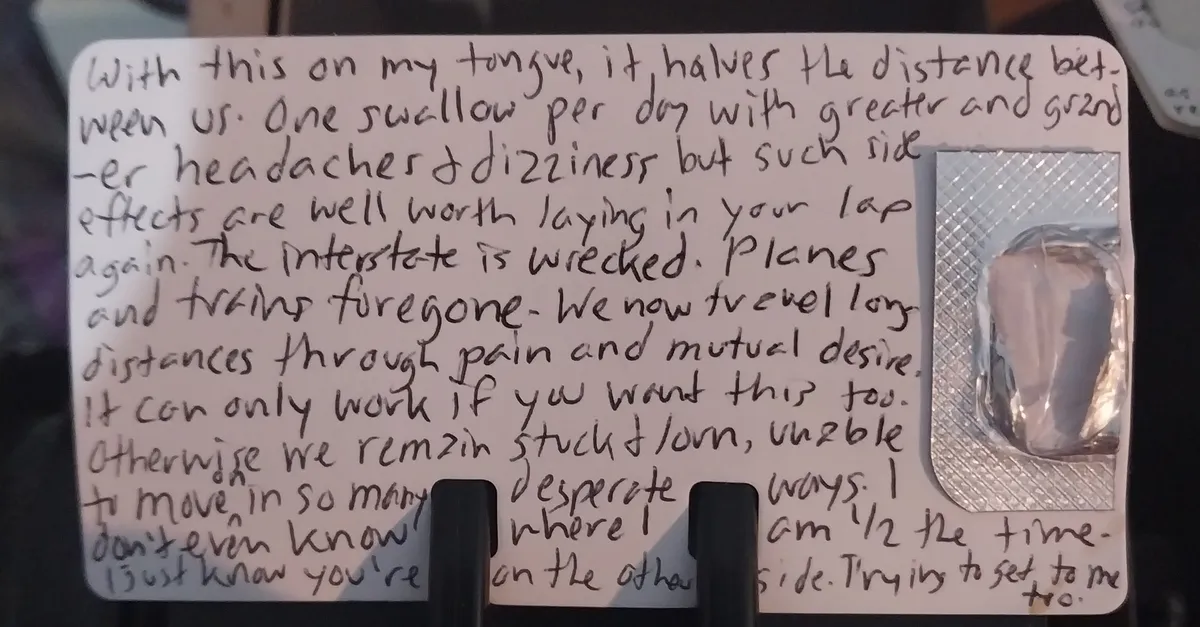 With this on my tongue, it halves the distance bet-
ween us. One swallow per day with greater and grand
-er headaches & dizziness but such side
effects are well worth laying in your lap
again. The interstate is wrecked. Planes
and trains foregone. We now travel long
distances through pain and mutual desire.
It can only work if you want this too.
Otherwise we remain stuck & lorn, unable
to move on in so many desperate ways. I
don't even know where I am 1/2 the time.
I just know you're on the other side. Trying to get to me
too.